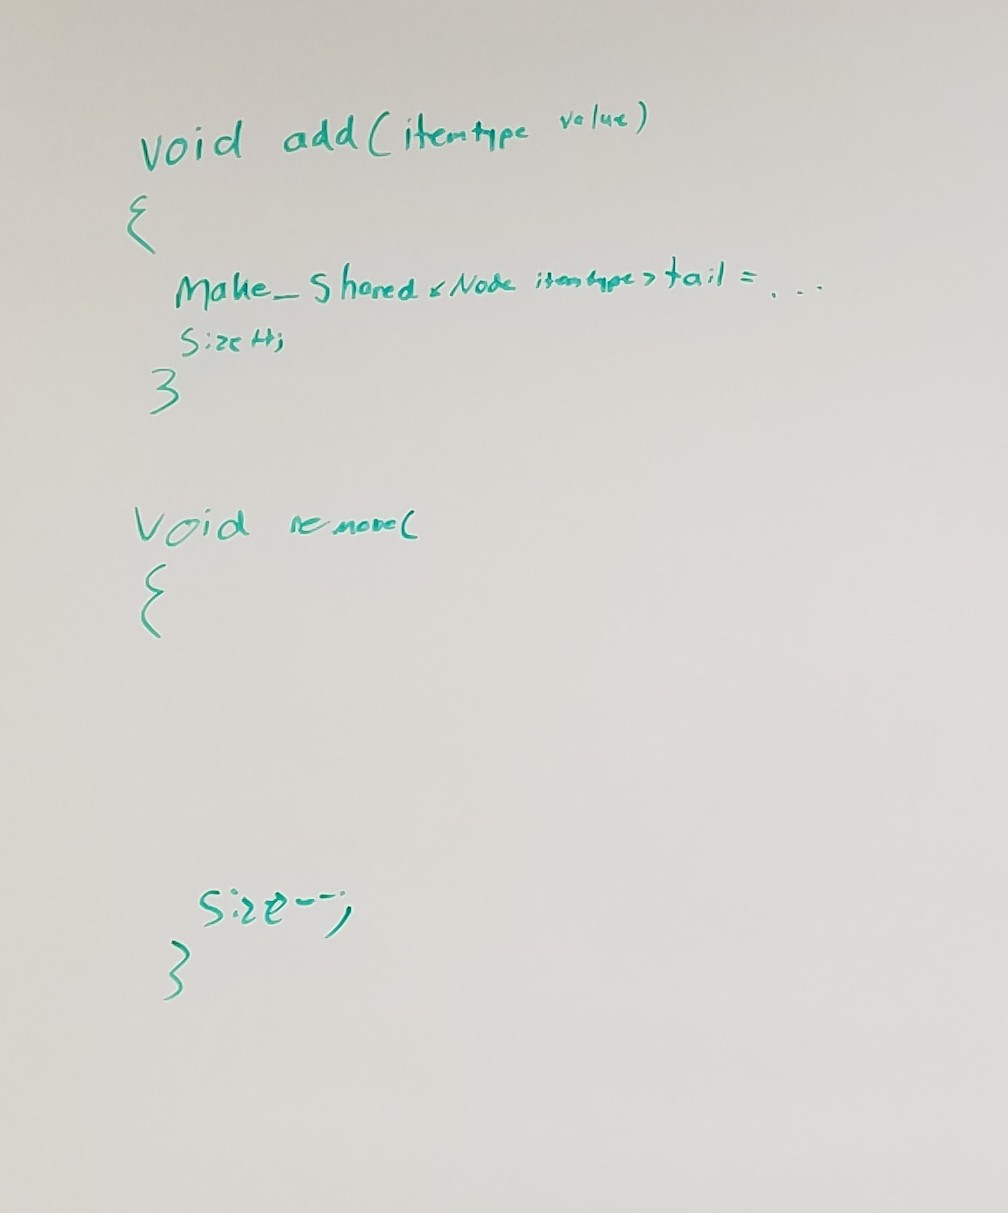 void add(itemtype value)
{
Make_Shared<Node itemtype>tail = ...
Size++;
}
Void remove(
{
Size--;
}